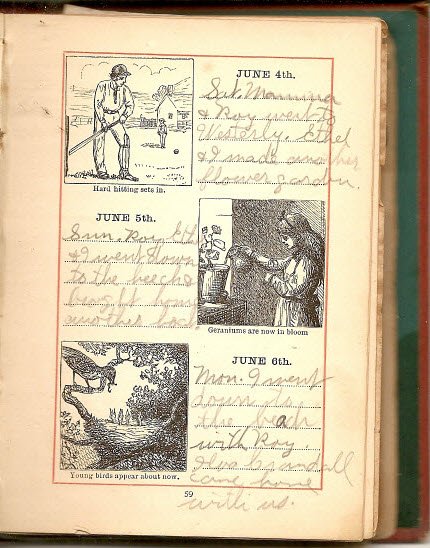 JUNE 4th.
Sat. Mamma
& Roy went to
Westerly. Ethel
& I made another
flower garden.
Hard hitting sets in.
JUNE 5th.
Sun. Roy, Eth
& I went down
to the beech &
home
another
Geraniums are now in bloom
JUNE 6th.
Mon. I went
down to
the beach
with Roy
Crandall
came home
with us.
Young birds appear about now.
59